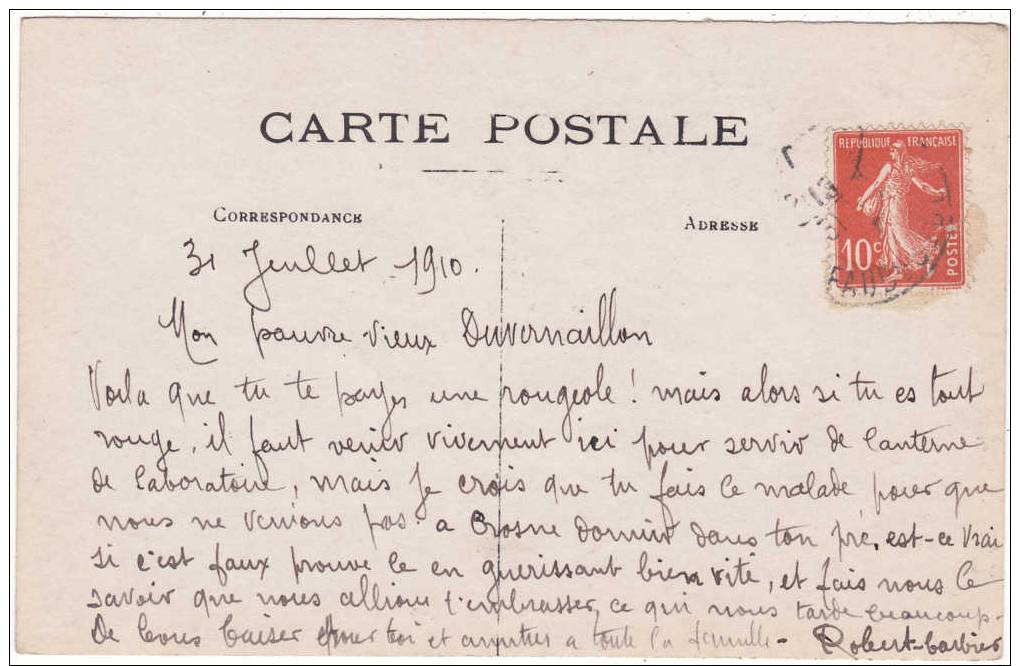 CARTE POSTALE
REPUBLIQUE FRANÇAISE
10c
POSTES
CORRESPONDANCE
ADRESSE
31 Juillet 1910.
Mon pauvre vieux Duvernaillon
Voila que tu te payes une rougeole ! mais alors si tu es tout
rouge, il faut venir vivement ici pour servir de lanterne
de laboratoire, mais je crois que tu fais le malade pour que
nous ne venions pas a Crosne dormir dans ton pré, est-ce vrai
si c'est faux prouve le en guerissant bien vite, et fais nous le
savoir que nous allions t'embrasser, ce qui nous tarde beaucoup.
De bons baiser pour toi et amitiés a toute la famille - Robert-barbier